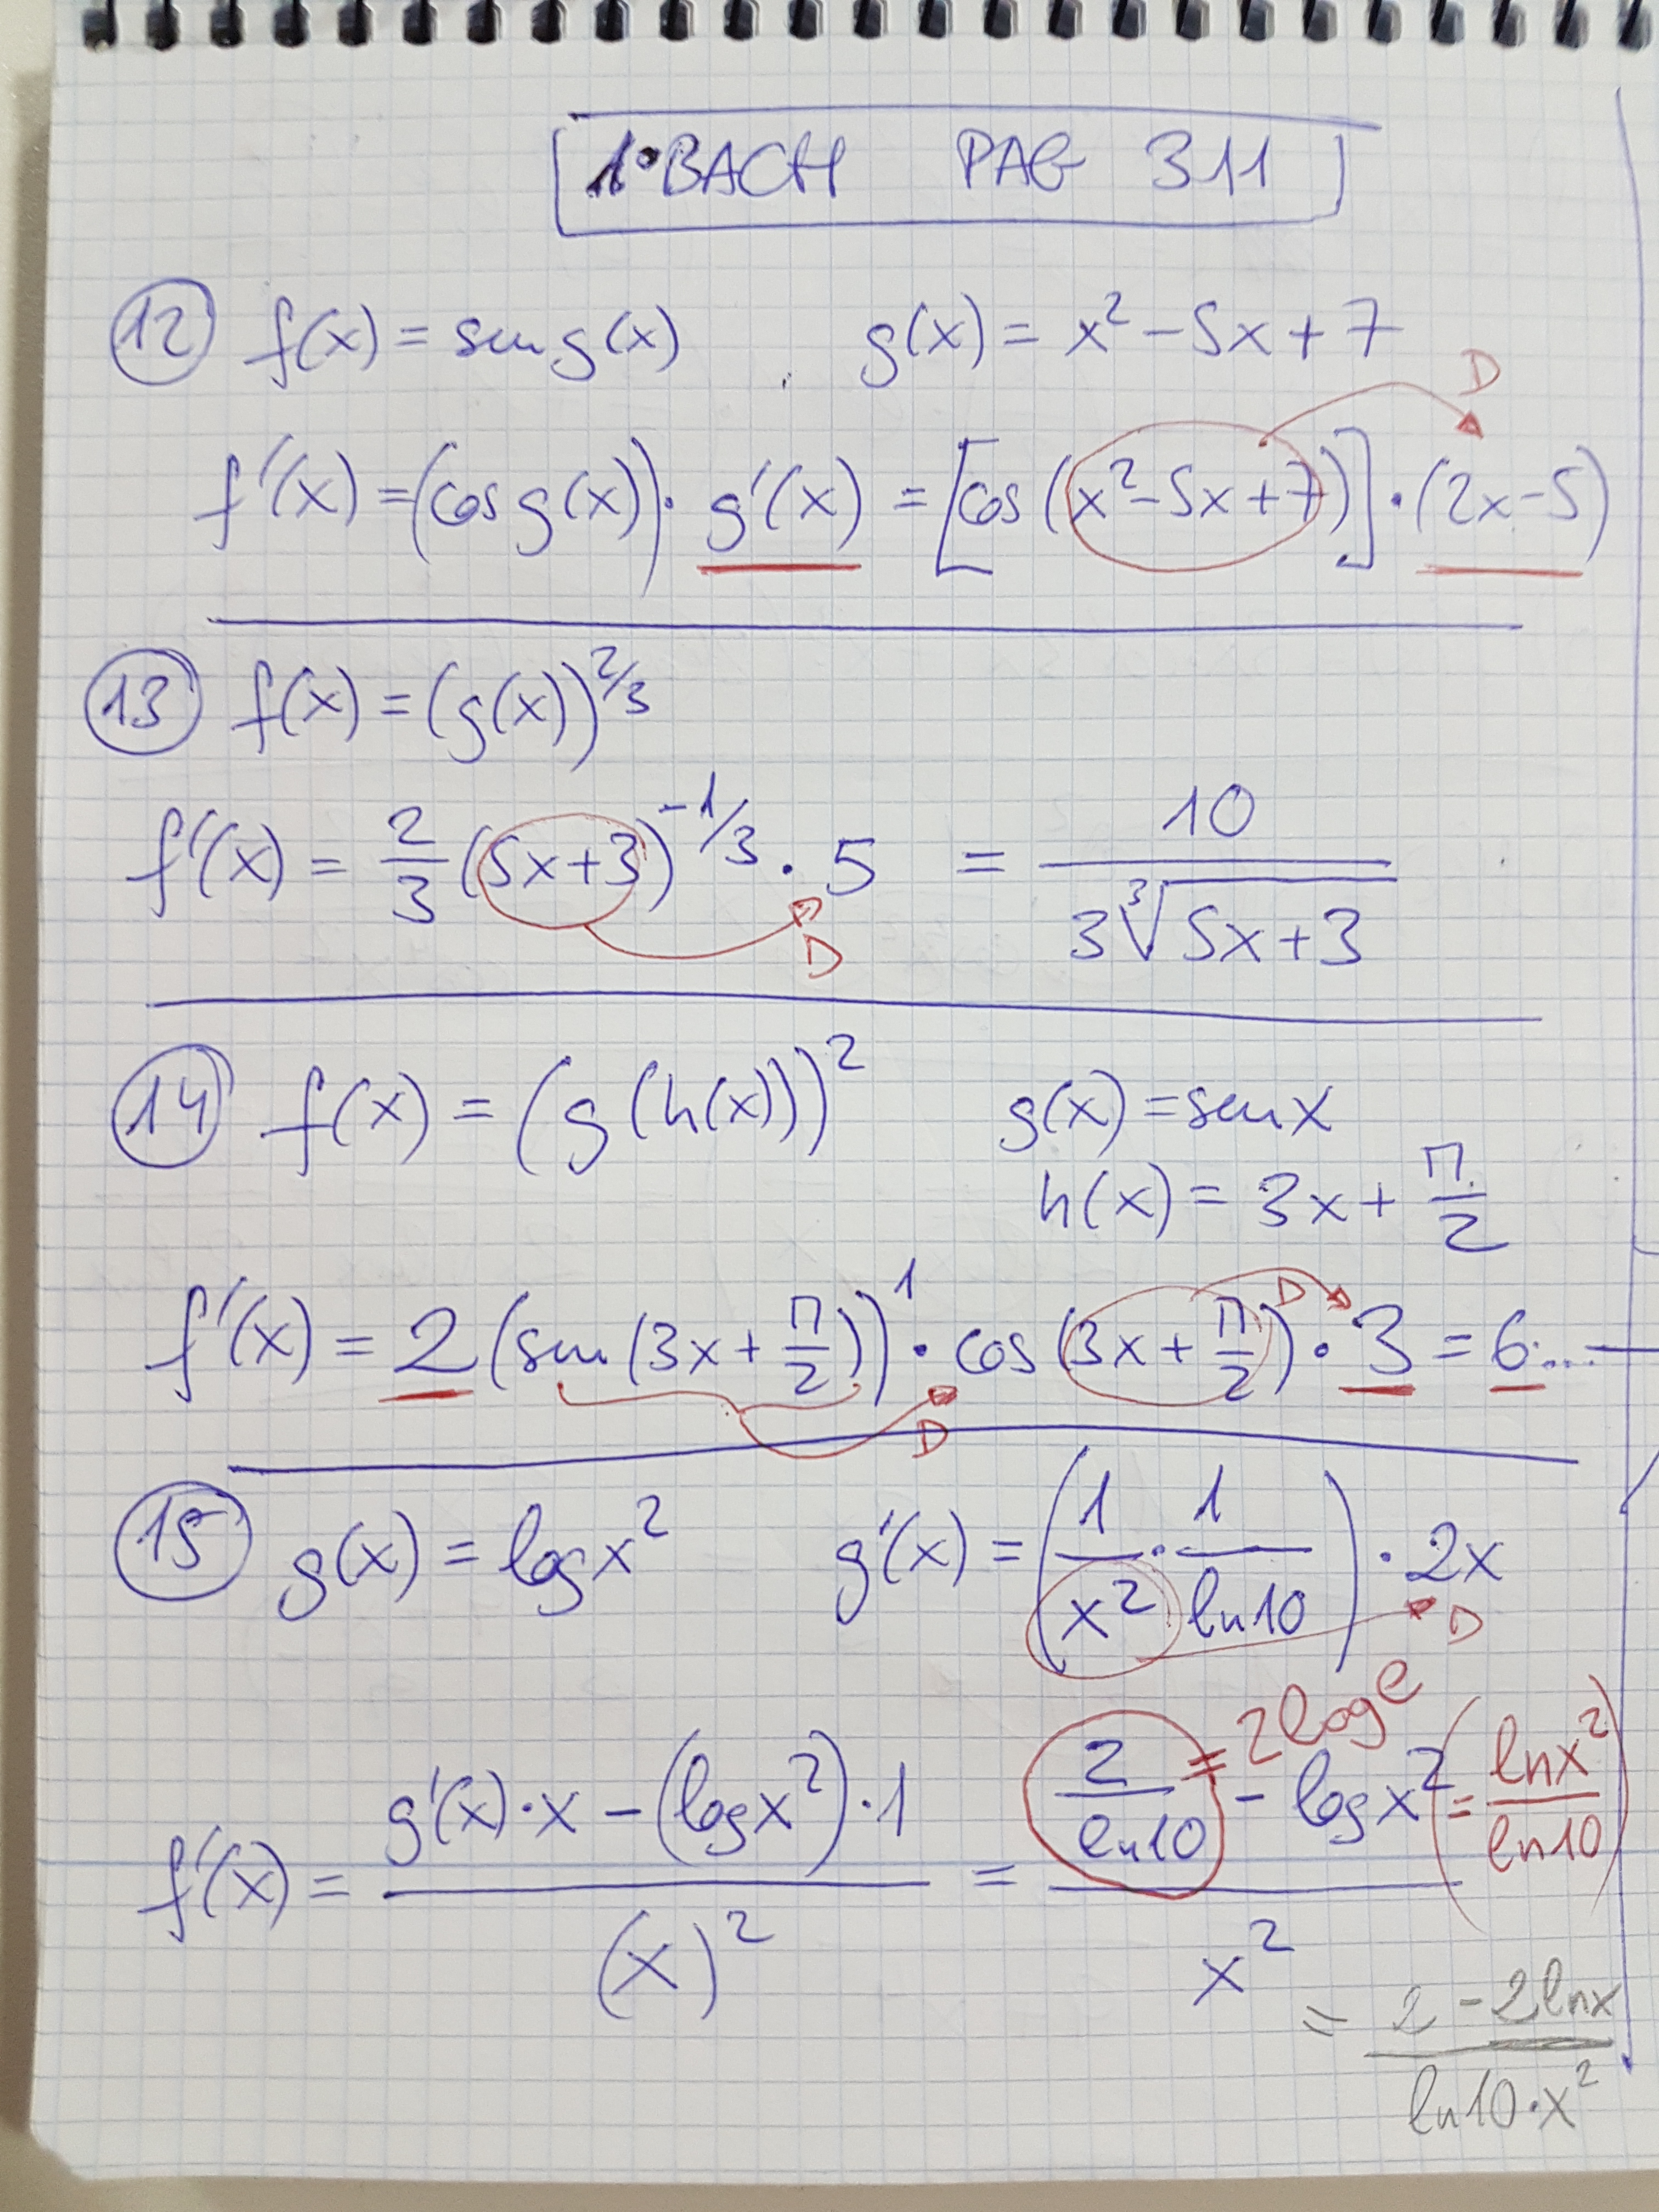 1º BACH PAG 311
12 f(x) = sen g(x) g(x) = x² - 5x + 7
D
f'(x) = (cos g(x)) · g'(x) = [cos (x² - 5x + 7)] · (2x - 5)
13 f(x) = (g(x))^2/3
f'(x) = 2/3 (5x+3)^-1/3 · 5 = 10 / 3∛5x+3
D
14 f(x) = (g(h(x)))² g(x) = sen x
h(x) = 3x + π/2
f'(x) = 2 (sen (3x + π/2))¹ · cos (3x + π/2) · 3 = 6...
D
D
15 g(x) = log x² g'(x) = (1/x² · 1/ln10) · 2x
D
f'(x) = g'(x)·x - (log x²)·1 / (x)² = 2/ln10 - log x² / x²
= 2 log e
(= ln x² / ln10)
= 2 - 2 ln x / ln10 · x²